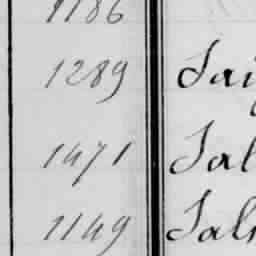 1186
1289 Sai
1471 Sal
1149 Sal